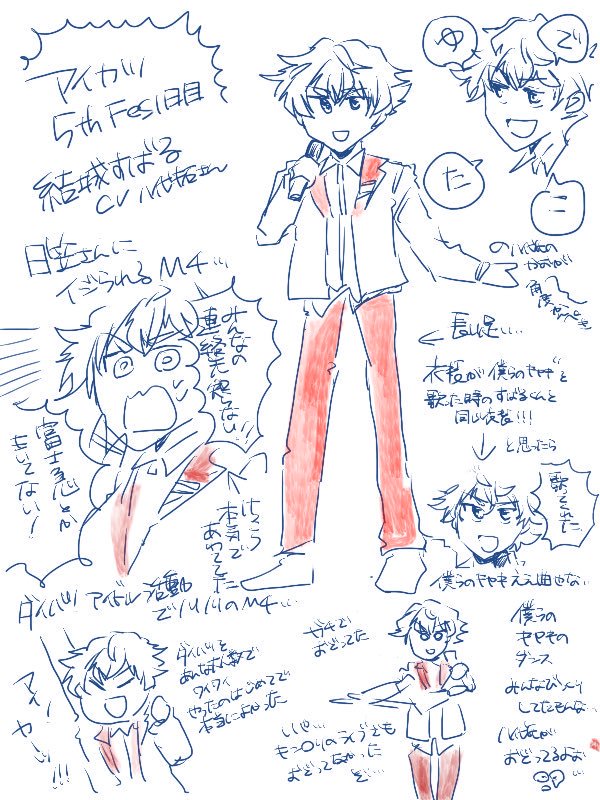 アイカツ
5th Fes1日目
結城すばる
CV 八代拓さん
日笠さんに
イジられるM4…
で
ゆ
た
ニ
の八代拓の
角度
← 長い足....
衣装が僕らのキセキを
歌った時のすばるくんと
同じ衣装!!!
↓ と思ったら
歌ってくれた
僕らのキセキええ曲やな…
みんなの
連絡先知らない!!
富士の心とか
きいてない!
けっこう
本気で
あわててた
ダイバツ アイドル活動
でノリノリのM4…
アイ!
ヤーツ!!!
ダイバツを
あんな大人数で
ワイワイ
やったのはじめてで
本当によかった
ガチで
おどってた
いや…
もっとりのライブでも
おどってなかった
ぞ…
僕らの
キセキの
ダンス
みんなびっくり
してたもんな…
八代拓が
おどってるよぉ